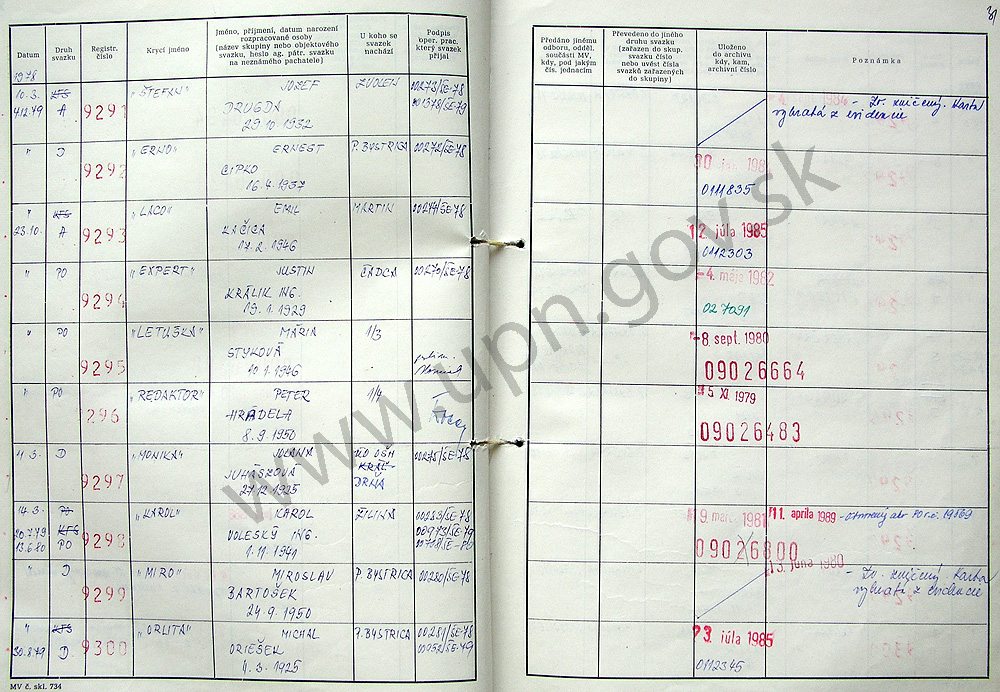 Datum
Druh svazku
Registr. číslo
Krycí jméno
Jméno, příjmení, datum narození
rozpracované osoby
(název skupiny nebo objektového
svazku, heslo ag. pátr. svazku
na neznámého pachatele)
U koho se
svazek
nachází
Podpis
oper. prac.
který svazek
přijal
Předáno jinému
odboru, odděl.
součásti MV,
kdy, pod jakým
čís. jednacím
Převedeno do jiného
druhu svazku
(zařazen do skup.
svazku číslo
nebo uvést čísla
svazků zařazených
do skupiny)
Uloženo
do archivu
kdy, kam,
archivní číslo
Poznámka
1978
10.3. KTS 9291 "ŠTEFAN" JOZEF ZVOLEN 00273/ŠE-78
4.12.79 A DRUGDA 001378/ŠE-79
29.10.1932
- Zv. zničený. Karta
vybratá z evidencie
" D 9292 "ERNO" ERNEST P. BYSTRICA 00272/ŠE-78
CIPKO
16.4.1937
30 1986
0111835
" KTS 9293 "LACO" EMIL MARTIN 00274/ŠE-78
23.10. A KAČICA
17.2.1946
12. júla 1985
0112303
" PO 9294 "EXPERT" JUSTIN ČADCA 00270/ŠE-78
KRÁLIK ING.
19.1.1929
-4. mája 1982
027091
" PO 9295 "LETUŠKA" MÁRIA 1/3
STYKOVÁ
10.1.1946
-8. sept. 1980
09026664
" PO 9296 "REDAKTOR" PETER 1/4
HRÁDELA
8.9.1950
5 XI. 1979
09026483
4.3. D 9297 "MONIKA" JOLANA 00275/ŠE-78
JUHÁSZOVÁ KRÁĽ
27.12.1925 DRŇA
14.3. PO 9298 "KAROL" KAROL ŽILINA 00283/ŠE-78
20.7.79 KTS VOLESKÝ ING. 00973/ŠE-79
13.6.80 PO 1.11.1941
19. mar. 1981 11. apríla 1989 - Otvorený ako PO r.č. 19569
09026800
13. júna 1980
" D 9299 "MIRO" MIROSLAV P. BYSTRICA 00280/ŠE-78
BARTOŠEK
24.9.1950
- Zv. zničený. Karta
vybratá z evidencie
" KTS 9300 "ORLITA" MICHAL P. BYSTRICA 00281/ŠE-78
30.8.79 D ORIEŠEK 00952/ŠE-79
1.3.1925
23. júla 1985
0112345
MV č. skl. 734
www.upn.gov.sk